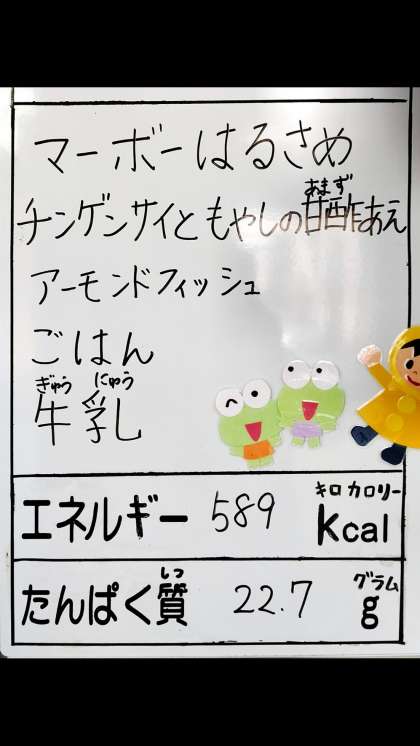 マーボーはるさめ
あまず
チンゲンサイともやしの甘酢あえ
アーモンドフィッシュ
ごはん
ぎゅう にゅう
牛乳
キロ カロリー
エネルギー 589 Kcal
しつ グラム
たんぱく質 22.7 g